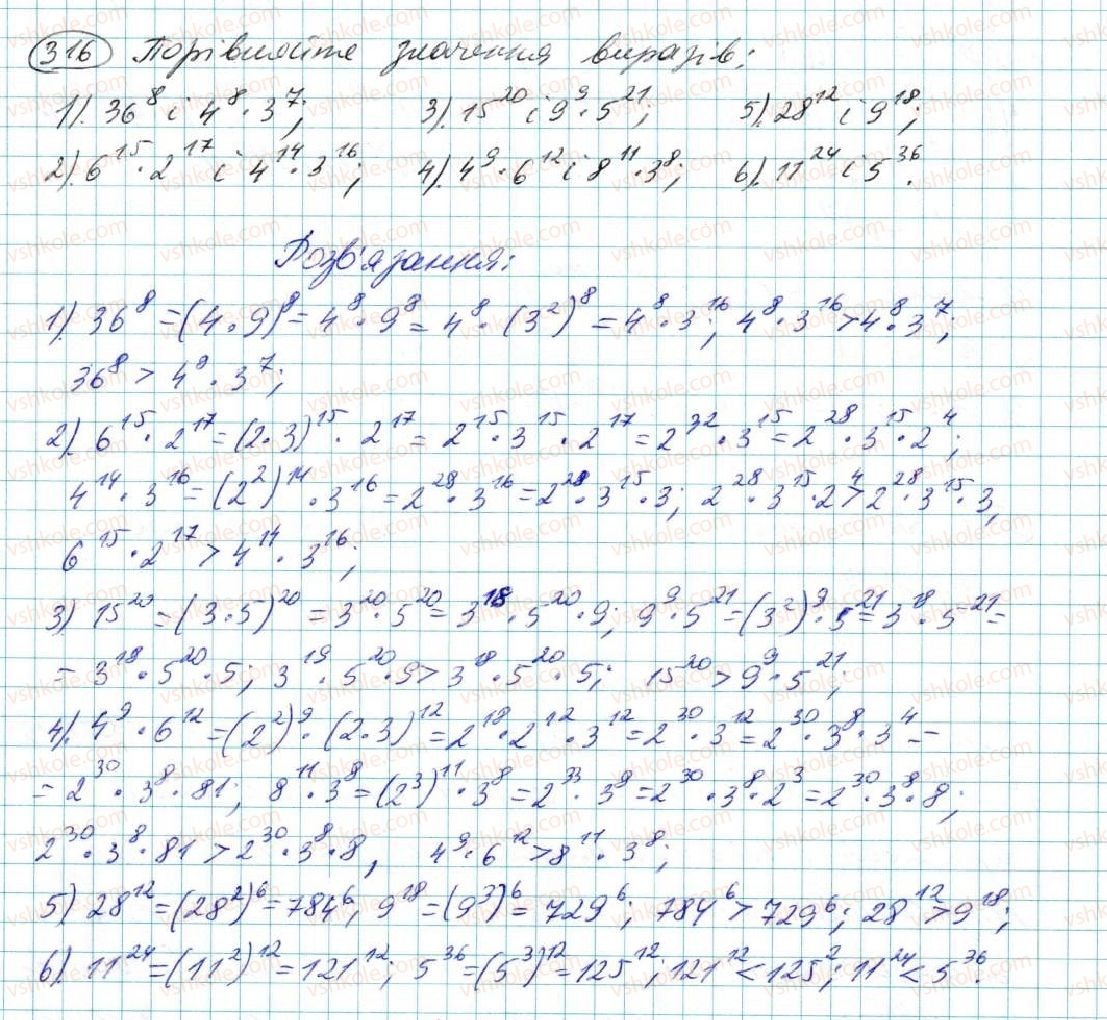 316 Порівняйте значення виразів:
1). 36⁸ і 4⁸·3⁷; 3). 15²⁰ і 9⁹·5²¹; 5). 28¹² і 9¹⁸;
2). 6¹⁵·2¹⁷ і 4¹⁴·3¹⁶; 4). 4⁹·6¹² і 8¹¹·3⁸; 6). 11²⁴ і 5³⁶.
Розв'язання:
1). 36⁸ = (4·9)⁸ = 4⁸·9⁸ = 4⁸·(3²)⁸ = 4⁸·3¹⁶; 4⁸·3¹⁶ > 4⁸·3⁷;
36⁸ > 4⁹·3⁷;
2). 6¹⁵·2¹⁷ = (2·3)¹⁵·2¹⁷ = 2¹⁵·3¹⁵·2¹⁷ = 2³²·3¹⁵ = 2²⁸·3¹⁵·2⁴;
4¹⁴·3¹⁶ = (2²)¹⁴·3¹⁶ = 2²⁸·3¹⁶ = 2²⁸·3¹⁵·3; 2²⁸·3¹⁵·2⁴ > 2²⁸·3¹⁵·3,
6¹⁵·2¹⁷ > 4¹⁴·3¹⁶;
3) 15²⁰ = (3·5)²⁰ = 3²⁰·5²⁰ = 3¹⁸·5²⁰·9; 9⁹·5²¹ = (3²)⁹·5²¹ = 3¹⁸·5²¹ =
= 3¹⁸·5²⁰·5; 3¹⁹·5²⁰·9 > 3¹⁸·5²⁰·5; 15²⁰ > 9⁹·5²¹;
4). 4⁹·6¹² = (2²)⁹·(2·3)¹² = 2¹⁸·2¹²·3¹² = 2³⁰·3¹² = 2³⁰·3⁸·3⁴ =
= 2³⁰·3⁸·81; 8¹¹·3⁸ = (2³)¹¹·3⁸ = 2³³·3⁸ = 2³⁰·3⁸·2³ = 2³⁰·3⁸·8;
2³⁰·3⁸·81 > 2³⁰·3⁸·8, 4⁹·6¹² > 8¹¹·3⁸;
5) 28¹² = (28²)⁶ = 784⁶; 9¹⁸ = (9³)⁶ = 729⁶; 784⁶ > 729⁶; 28¹² > 9¹⁸;
6). 11²⁴ = (11²)¹² = 121¹²; 5³⁶ = (5³)¹² = 125¹²; 121¹² < 125²; 11²⁴ < 5³⁶.